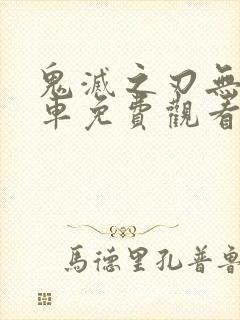 鬼滅之刃無
車免費觀看
馬德里孔普魯